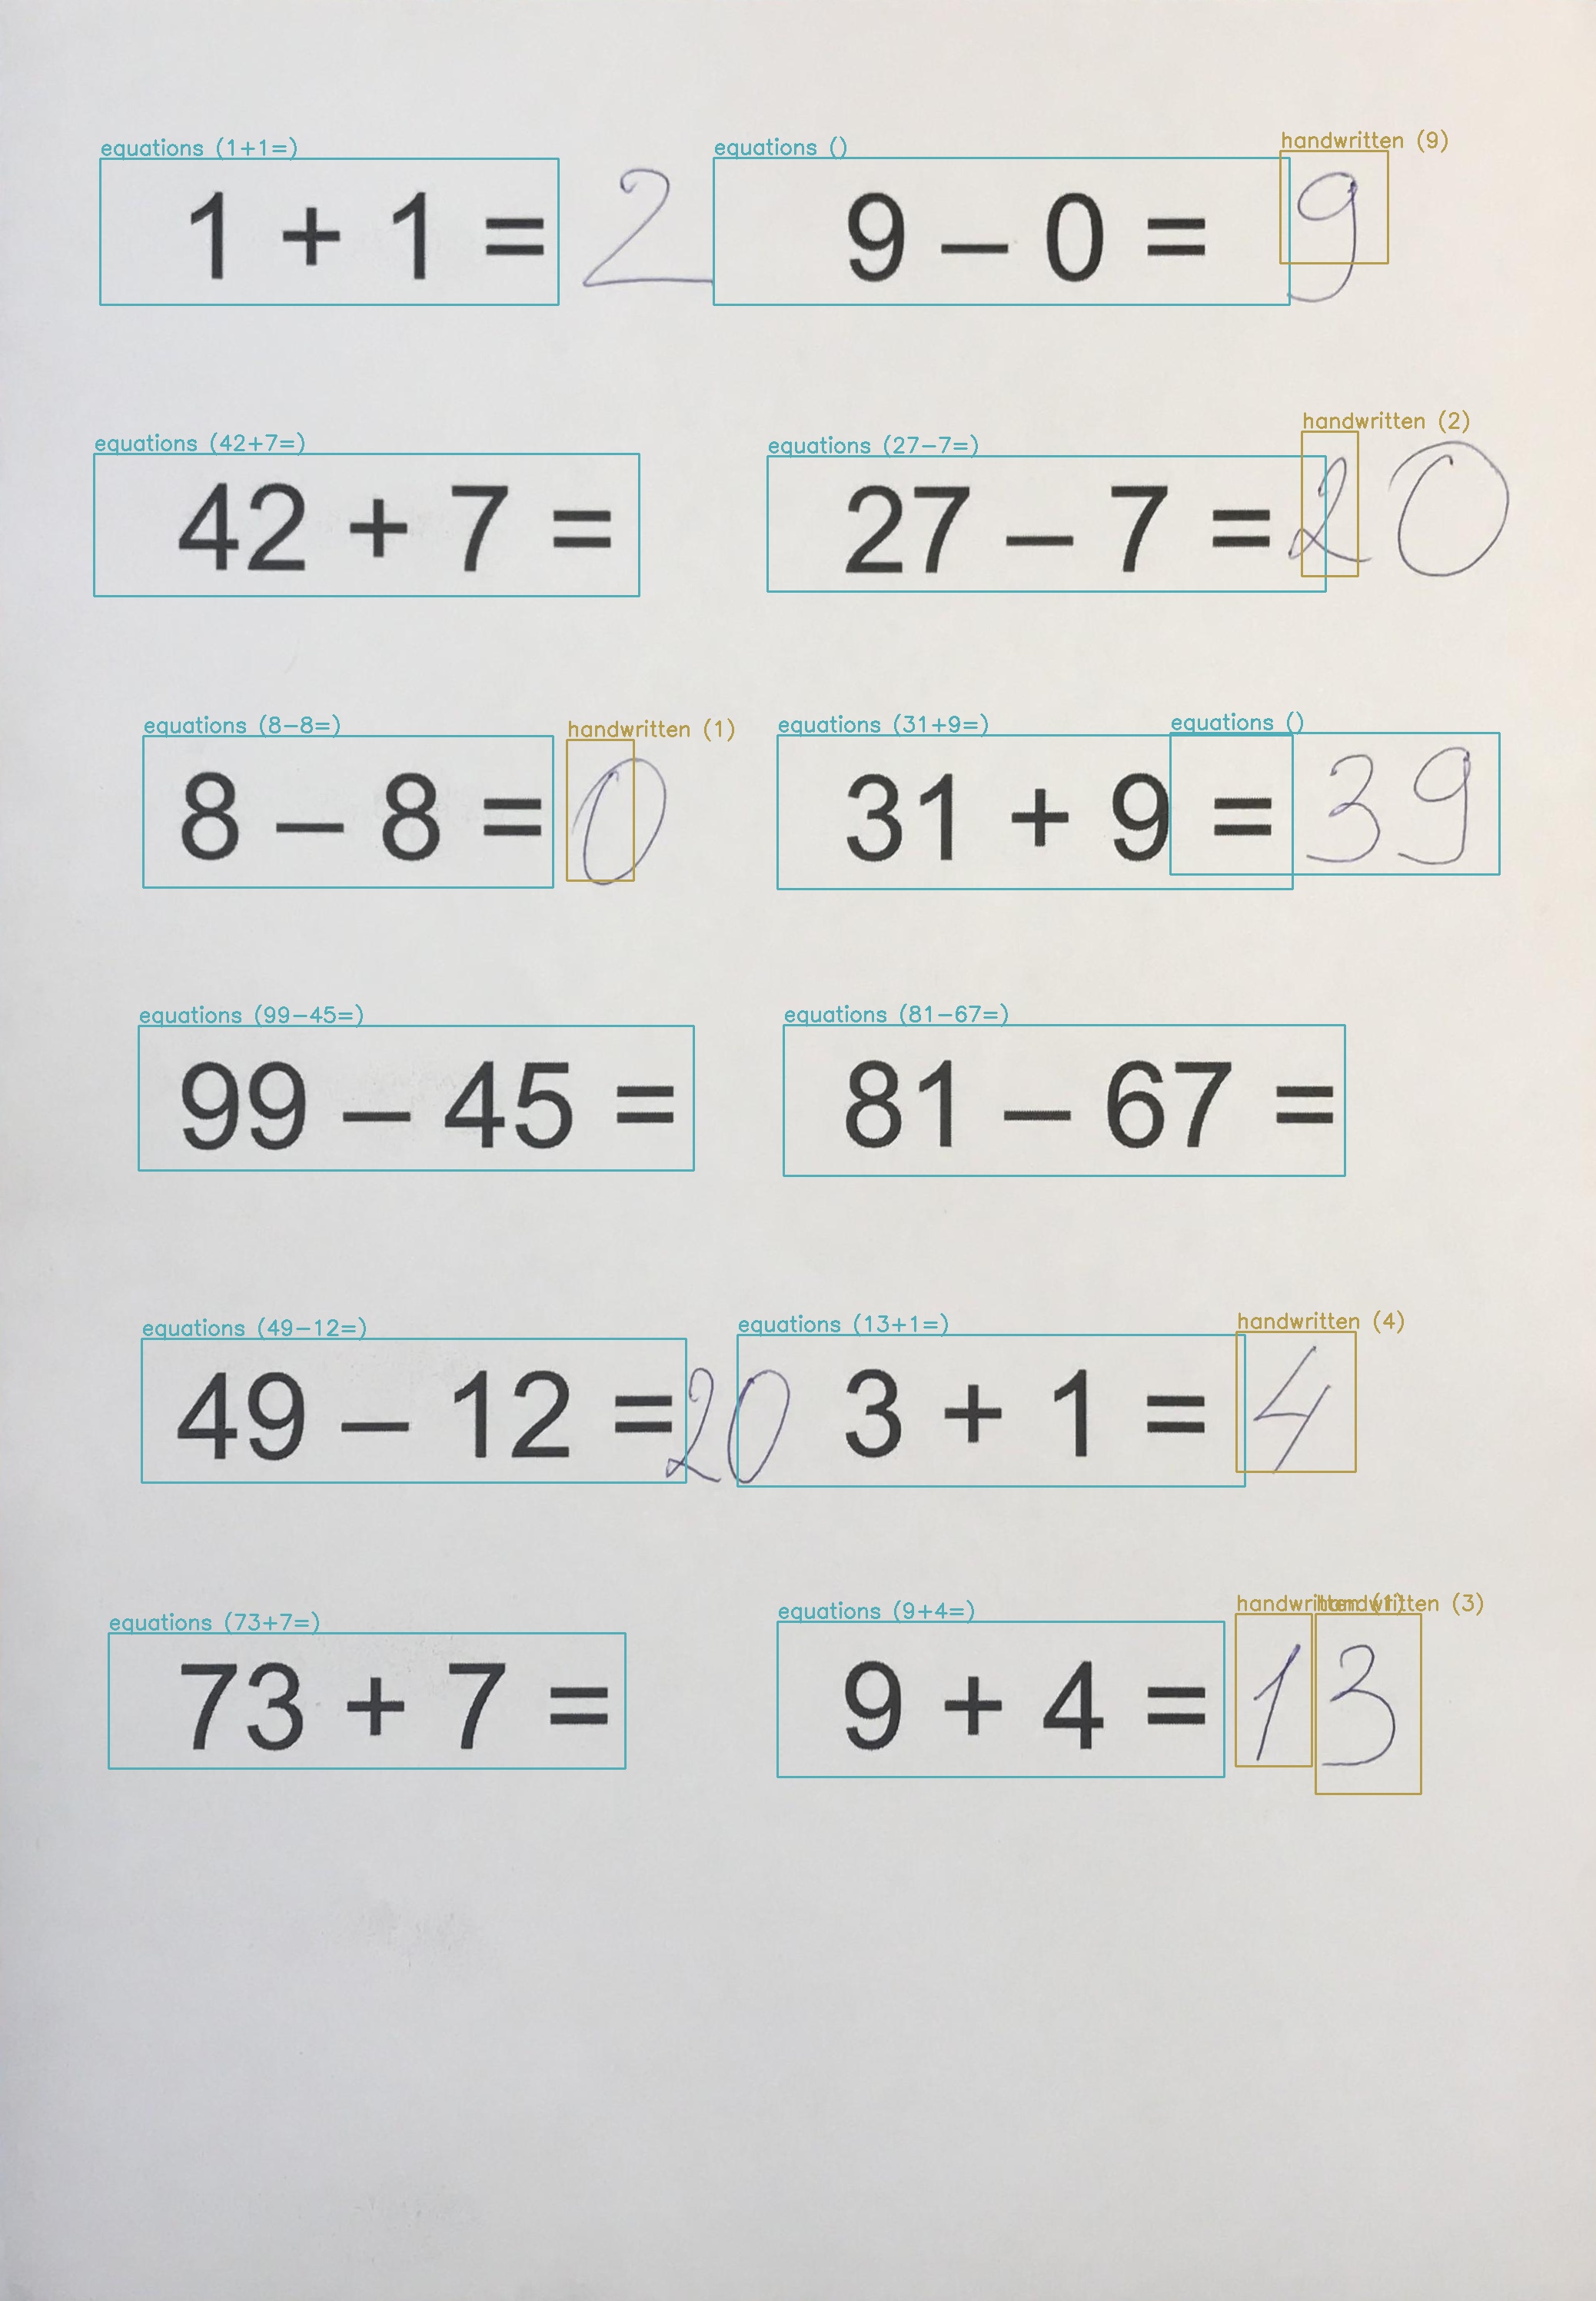 equations (1+1=) equations () handwritten (9)
1 + 1 = 2 9 – 0 = 9
equations (42+7=) equations (27-7=) handwritten (2)
42 + 7 = 27 – 7 = 20
equations (8-8=) handwritten (1) equations (31+9=) equations ()
8 – 8 = 0 31 + 9 = 39
equations (99-45=) equations (81-67=)
99 – 45 = 81 – 67 =
equations (49-12=) equations (13+1=) handwritten (4)
49 – 12 = 20 3 + 1 = 4
equations (73+7=) equations (9+4=) handwritten (1) handwritten (3)
73 + 7 = 9 + 4 = 13